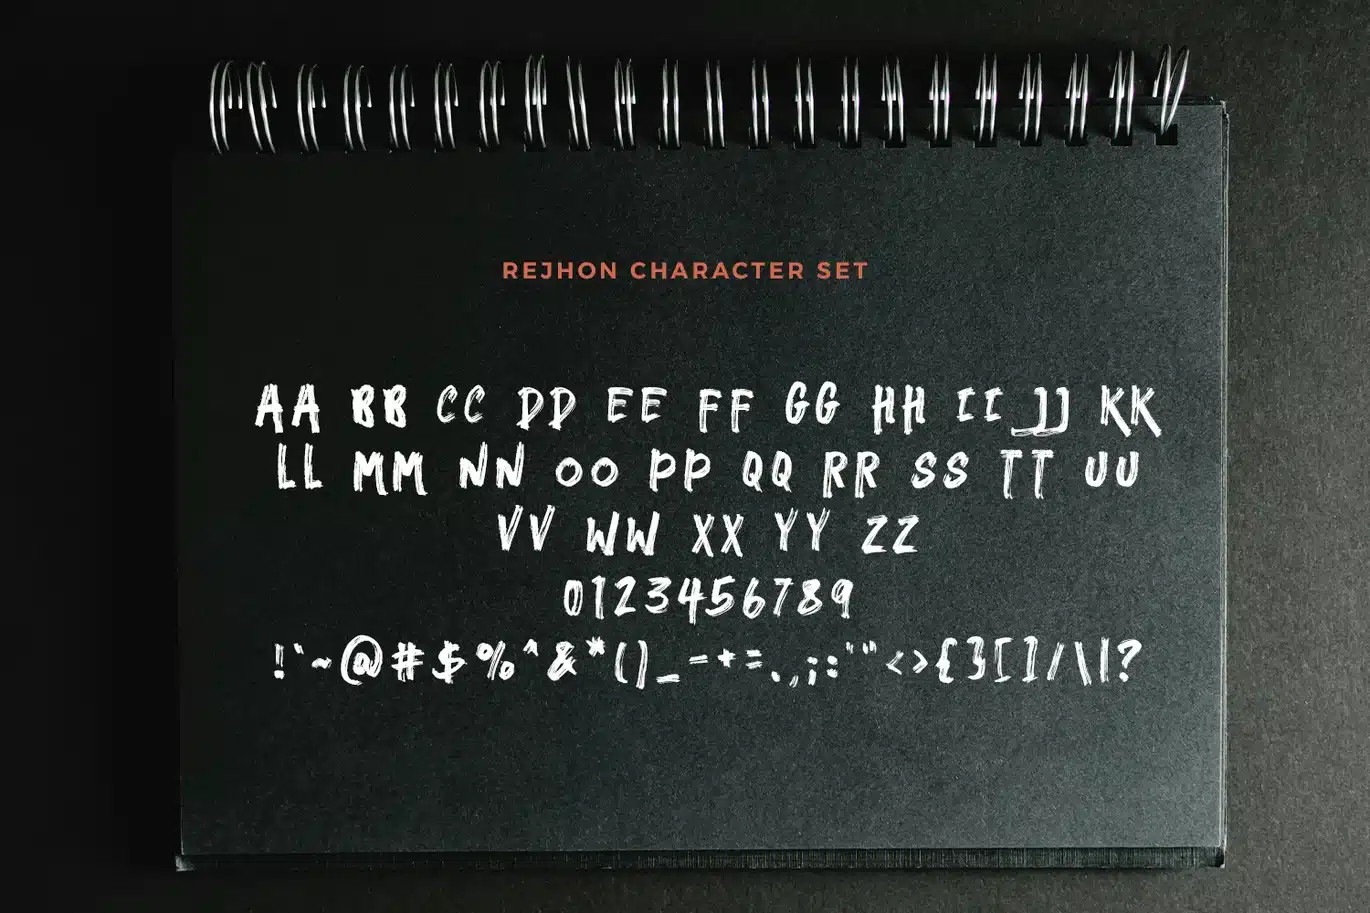 REJHON CHARACTER SET
AA BB CC DD EE FF GG HH II JJ KK
LL MM NN OO PP QQ RR SS TT UU
VV WW XX YY ZZ
0123456789
!`~@#$%^&*()_-+=.,;:'"<>{}[]/\|?